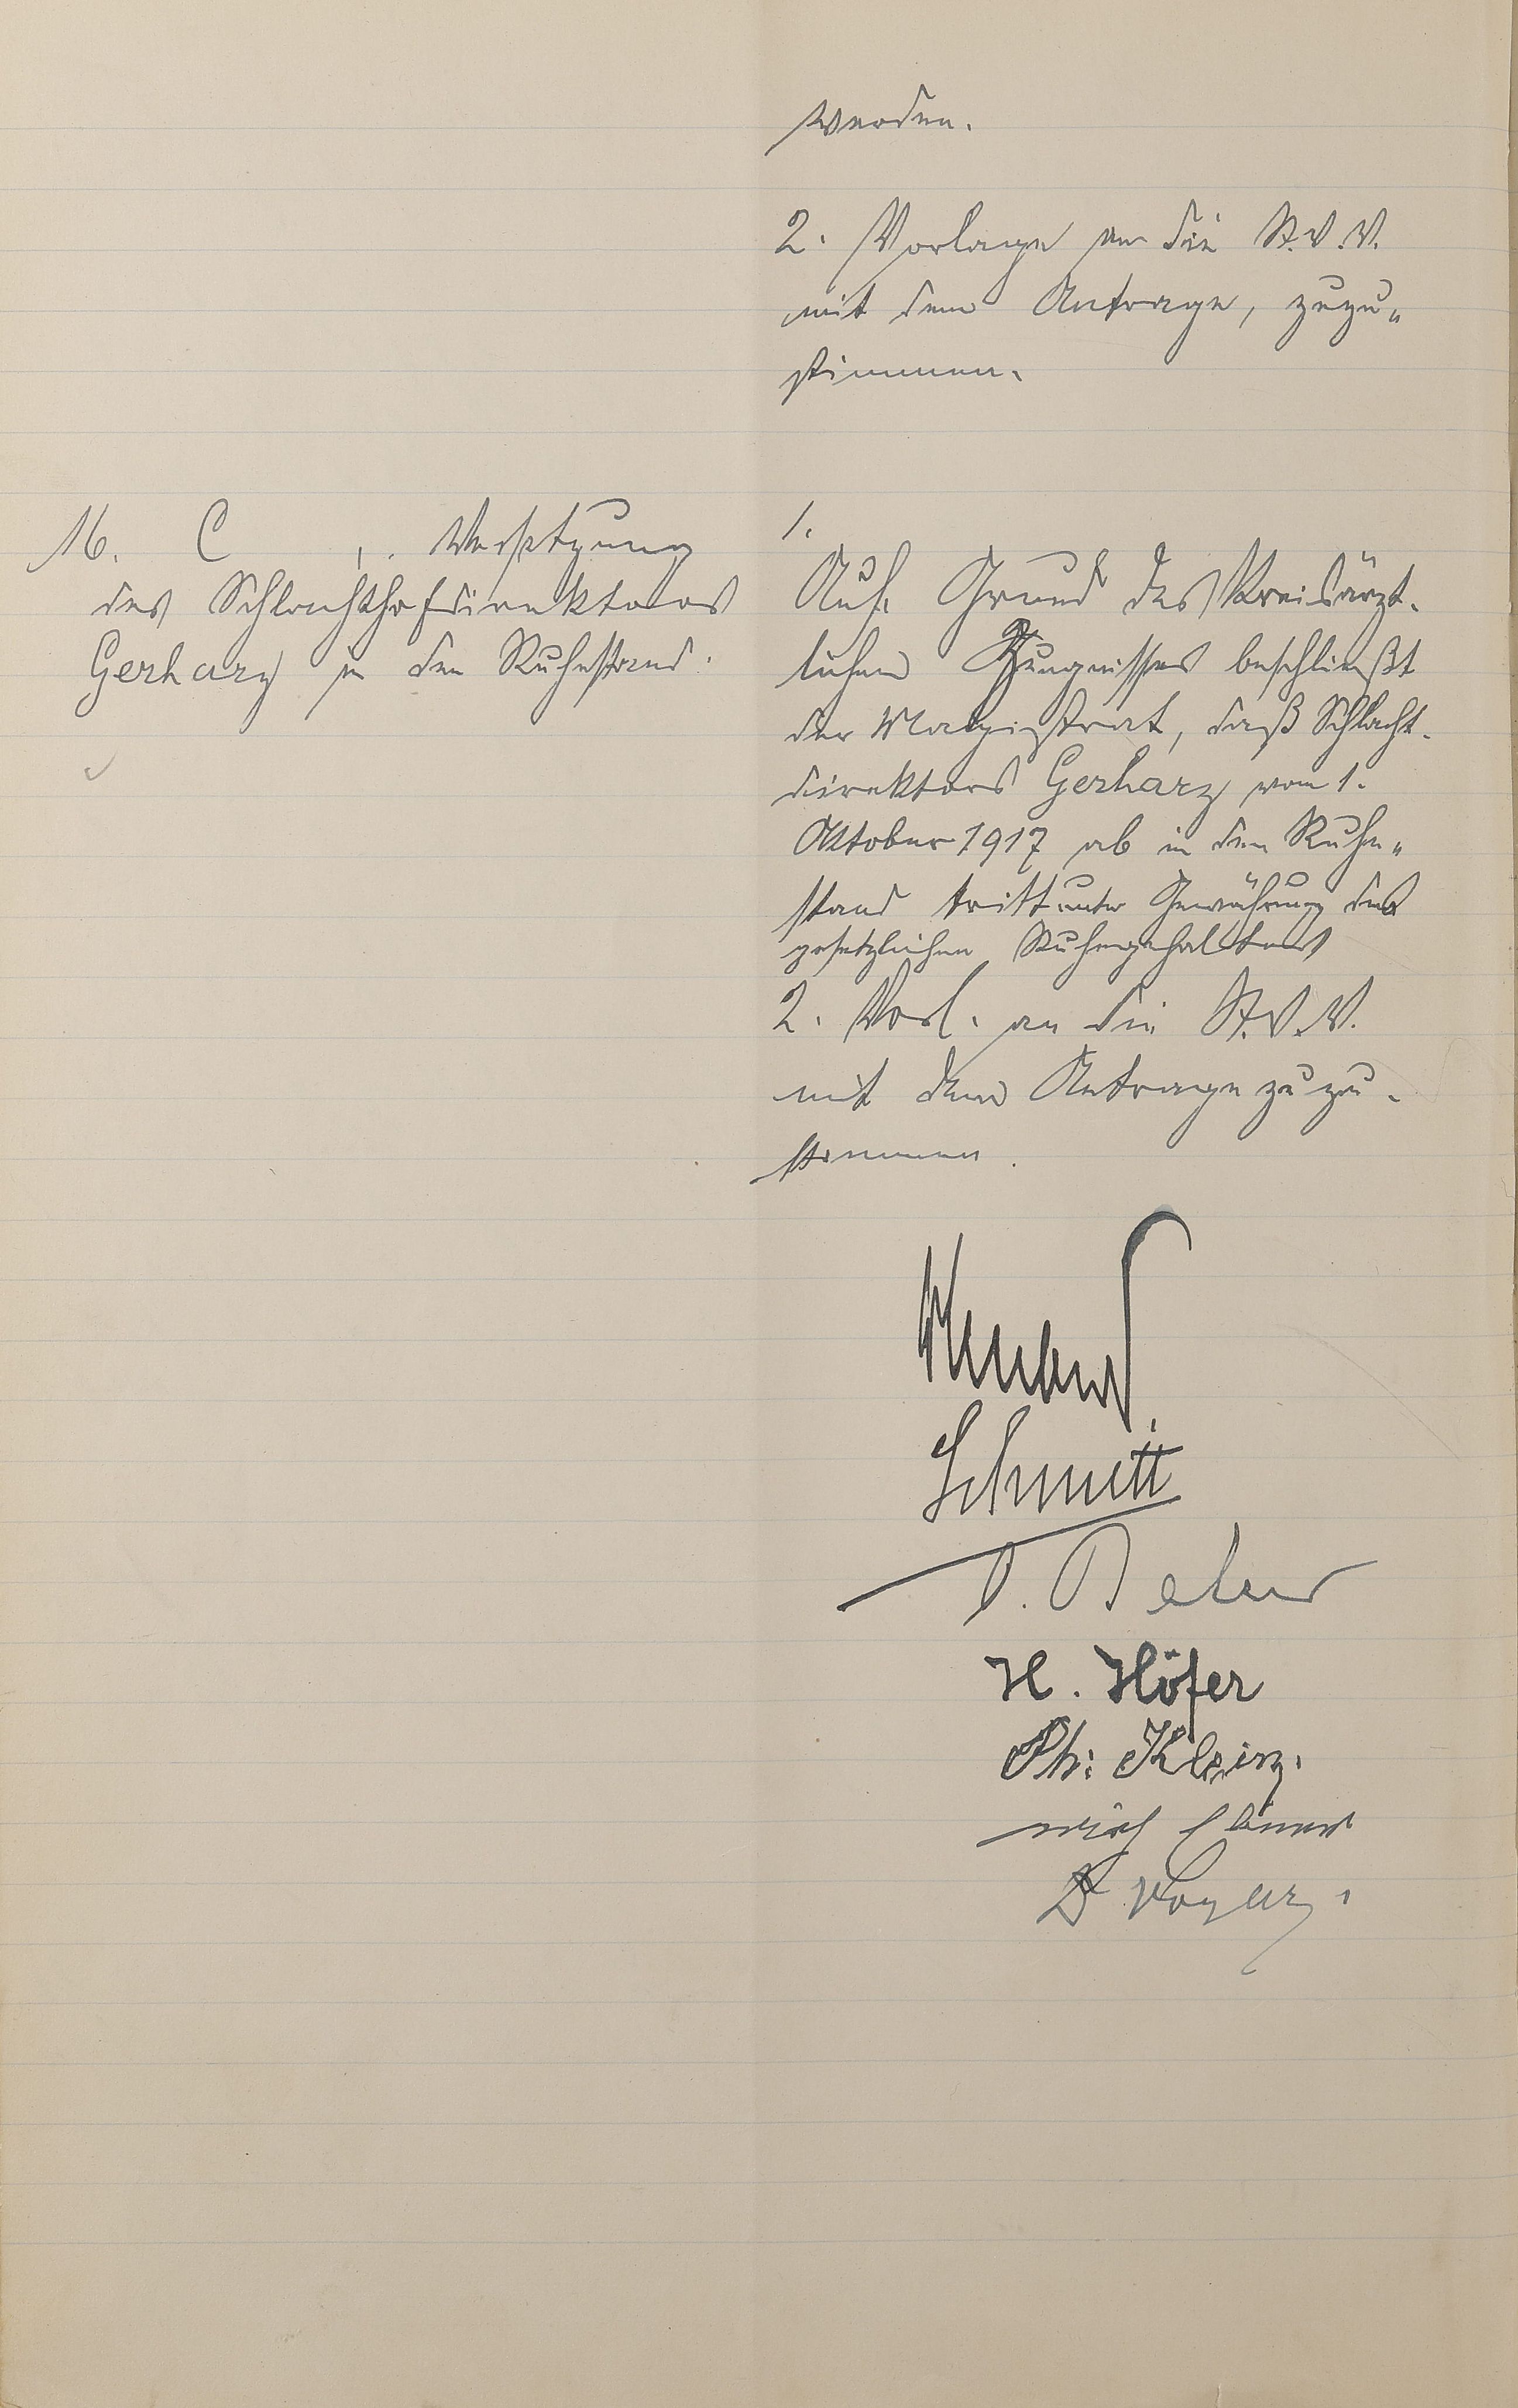 werden.
2. Vorlage an die St.V.V.
mit dem Antrage, zuzu„
stimmen.
16. C Versetzung
des Schlachthofdirektors
Gerharz in den Ruhestand.
1.
Auf Grund des Kreisärzt-
lichen Zeugnisses beschließt
der Magistrat, daß Schlacht-
direktors Gerharz vom 1.
Oktober 1917 ab in den Ruhe„
stand tritt unter Gewährung des
gesetzlichen Ruhegehaltes
2. Vorl. an die St.V.V.
mit dem Antrage zuzu-
stimmen.
Schmitt
H. Höfer
Ph: Klein.